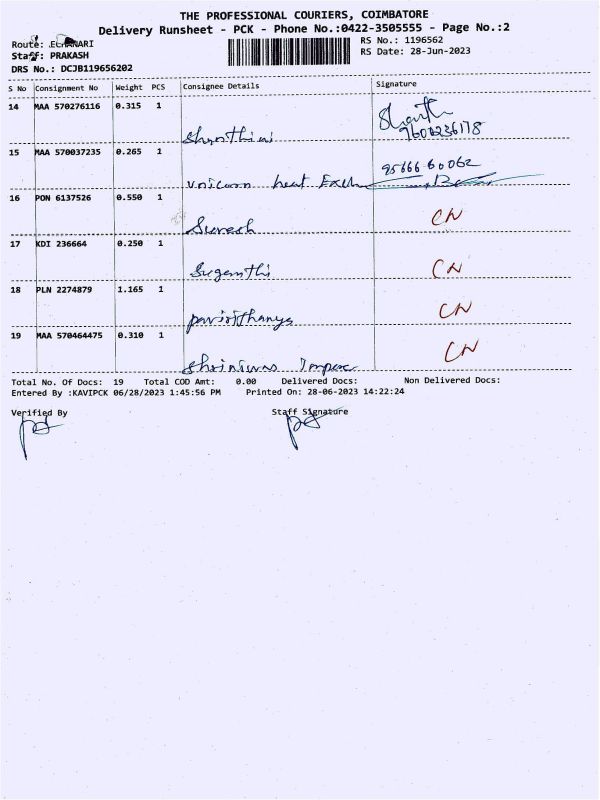 THE PROFESSIONAL COURIERS, COIMBATORE
Delivery Runsheet - PCK - Phone No.:0422-3505555 - Page No.:2
Route: RS No.: 1196562
Staff: PRAKASH RS Date: 28-Jun-2023
DRS No.: DCJB119656202
S No Consignment No Weight PCS Consignee Details Signature
14 MAA 570276116 0.315 1
9600236178
Shynthini
15 MAA 570037235 0.265 1
95666 60062
Unicorn heat Exch
16 PON 6137526 0.550 1 CN
Suresh
17 KDI 236664 0.250 1 CN
Suganthi
18 PLN 2274879 1.165 1 CN
19 MAA 570464475 0.310 1 CN
Shrinivas Impex
Total No. Of Docs: 19 Total COD Amt: 0.00 Delivered Docs: Non Delivered Docs:
Entered By :KAVIPCK 06/28/2023 1:45:56 PM Printed On: 28-06-2023 14:22:24
Verified By Staff Signature